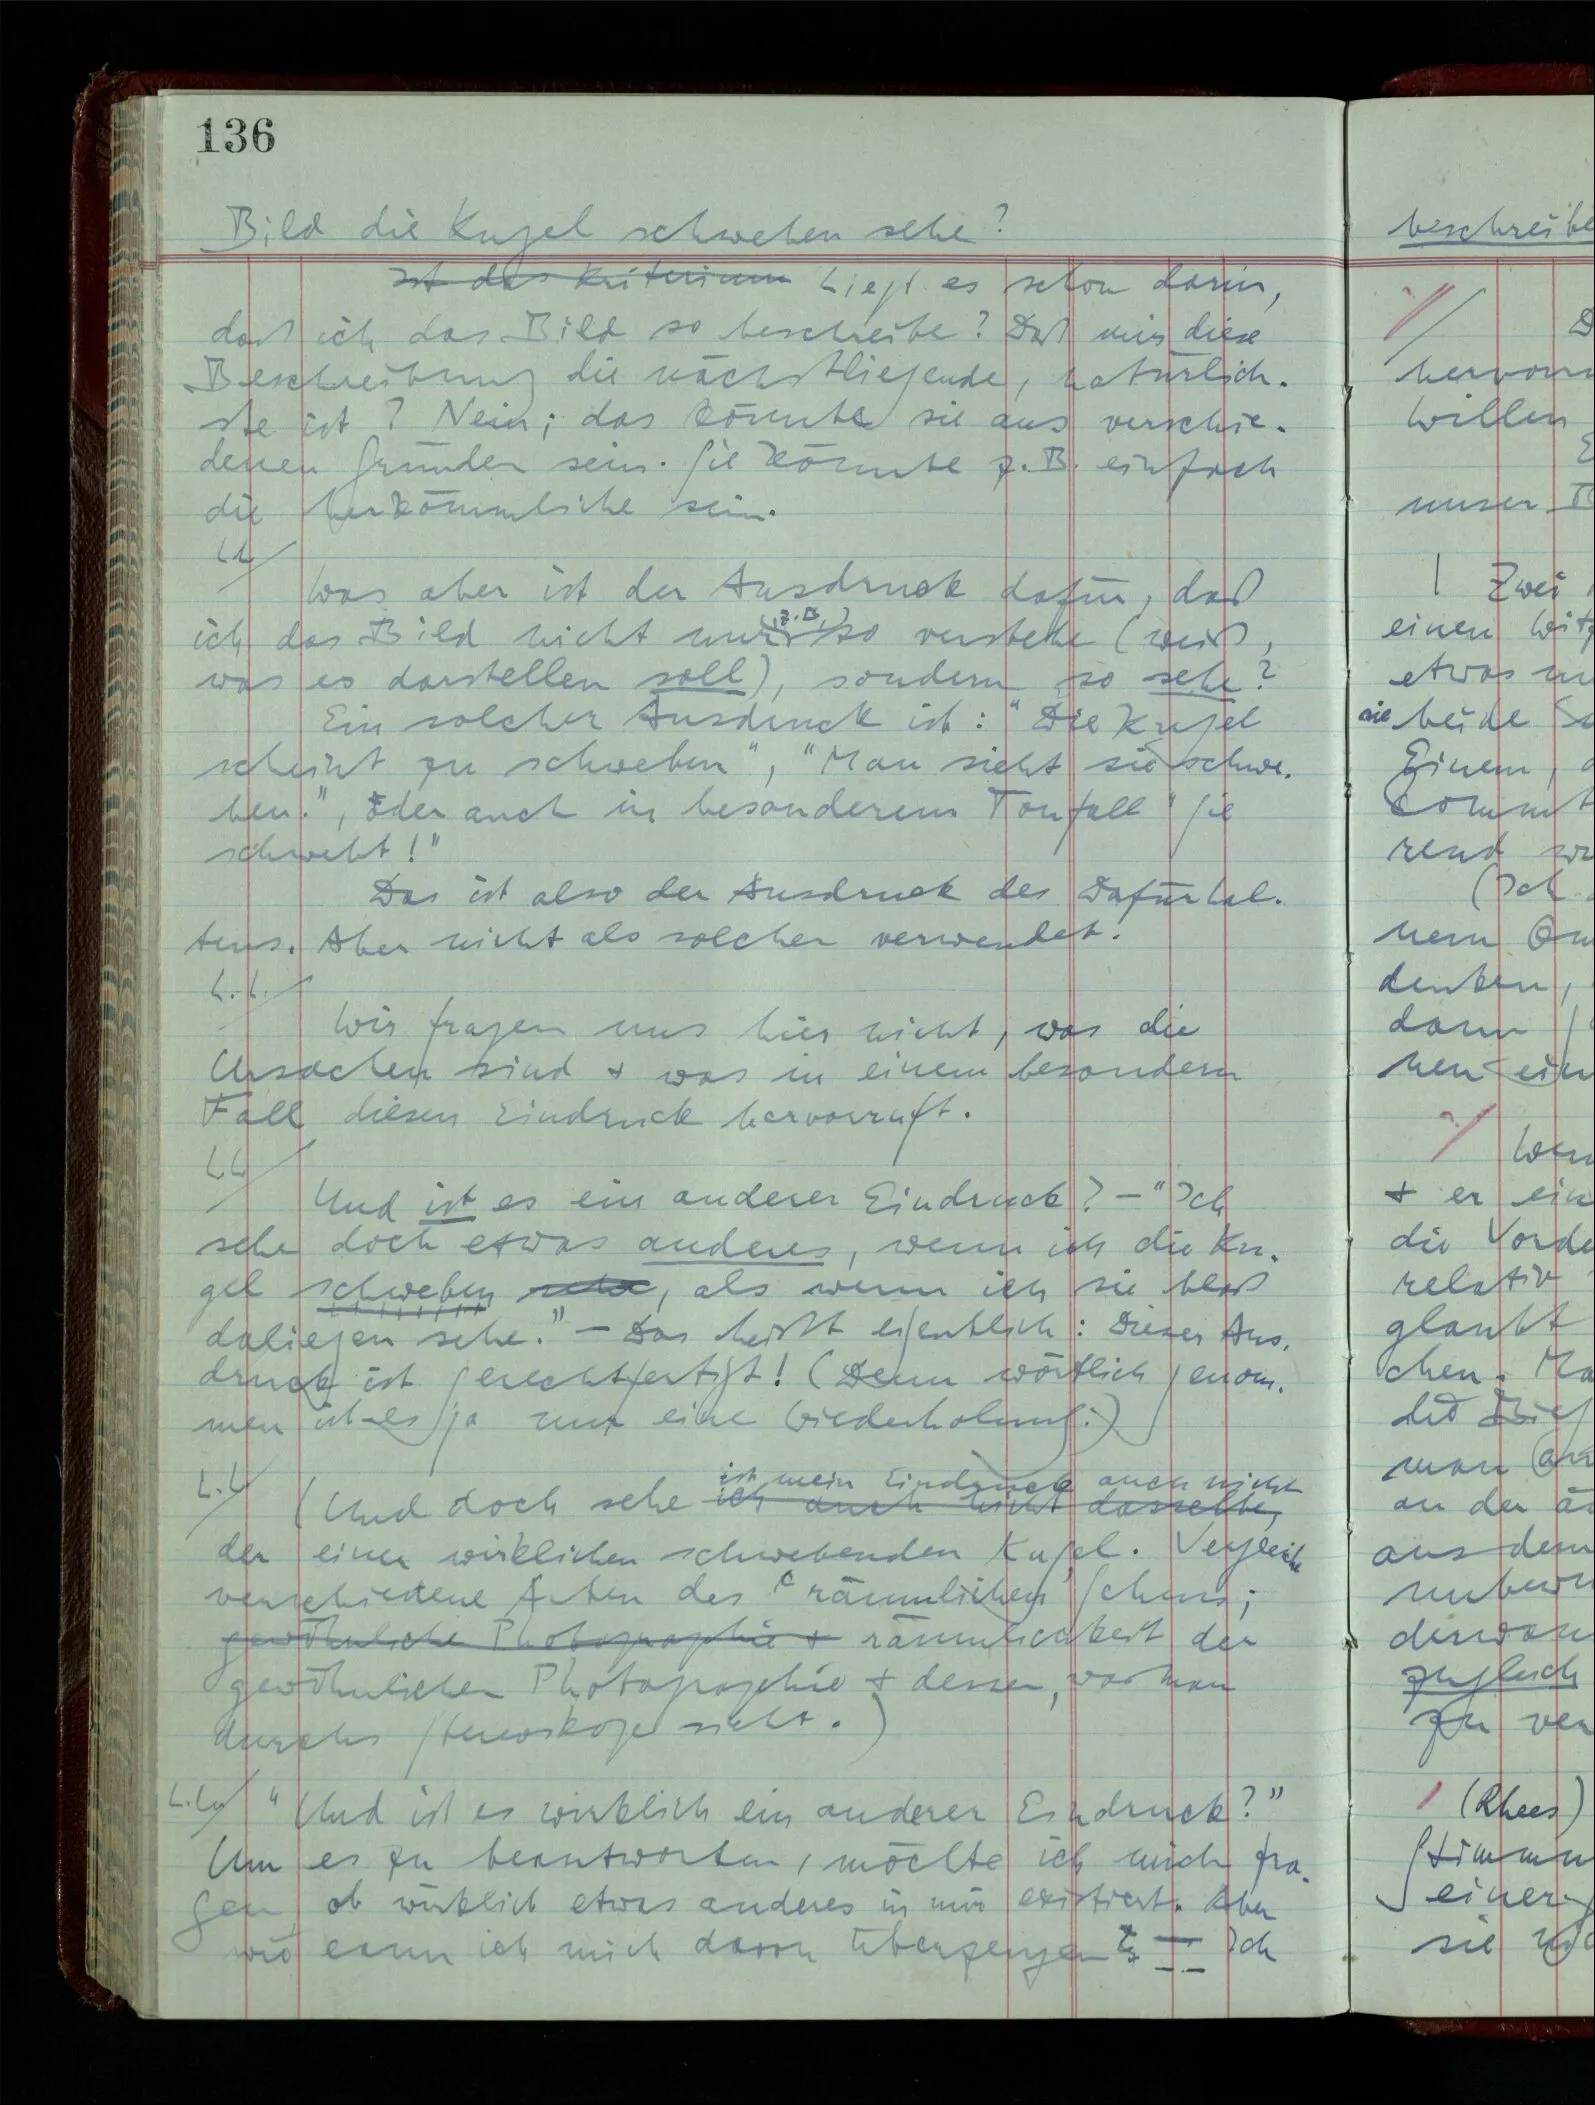 136
Bild die Kugel schweben sehe?
Ist das Kriterium Liegt es schon darin,
daß ich das Bild so beschreibe? Daß mir diese
Beschreibung die nächstliegende, natürlich-
ste ist? Nein; das könnte sie aus verschie-
denen Gründen sein. Sie könnte z.B. einfach
die herkömmliche sein.
Was aber ist der Ausdruck dafür, daß
ich das Bild nicht nur z.B. so verstehe (weiß,
was es darstellen soll), sondern so sehe?
Ein solcher Ausdruck ist: "Die Kugel
scheint zu schweben", "Man sieht sie schwe-
ben.", oder auch in besonderem Tonfall "Sie
schwebt!"
Das ist also der Ausdruck des Dafürhal-
tens. Aber nicht als solcher verwendet.
Wir fragen uns hier nicht, was die
Ursachen sind + was in einem besondern
Fall diesen Eindruck hervorruft.
Und ist es ein anderer Eindruck? – "Ich
sehe doch etwas anderes, wenn ich die Ku-
gel schweben sehe, als wenn ich sie bloß
daliegen sehe." – Das heißt eigentlich: Dieser Aus-
druck ist gerechtfertigt! (Denn wörtlich genom-
men ist es ja nur eine Wiederholung.)
ist mein Eindruck auch nicht
(Und doch sehe ich auch nicht dasselbe,
der einer wirklichen schwebenden Kugel. Vergleiche
verschiedene Arten des 'räumlichen Sehens;
gewöhnliche Photographie + räumlichkeit der
gewöhnlichen Photographie + dessen, was man
durchs Stereoskop sieht.)
"Und ist es wirklich ein anderer Eindruck?"
Um es zu beantworten, möchte ich mich fra-
gen, ob wirklich etwas anderes in mir existiert. Aber
wie kann ich mich davon überzeugen? – Ich
beschreibe
hervor
Willen
unser
Zwei
einen
etwas
sie beide
Einem,
rend
(Ich
nem
denken,
dann
nen ein
+ er ein
die Vorde
relativ
glaubt
chen. Ma
man
an der
aus dem
zugleich
zu ver
(Rhees)
Stimmu
einer
sie